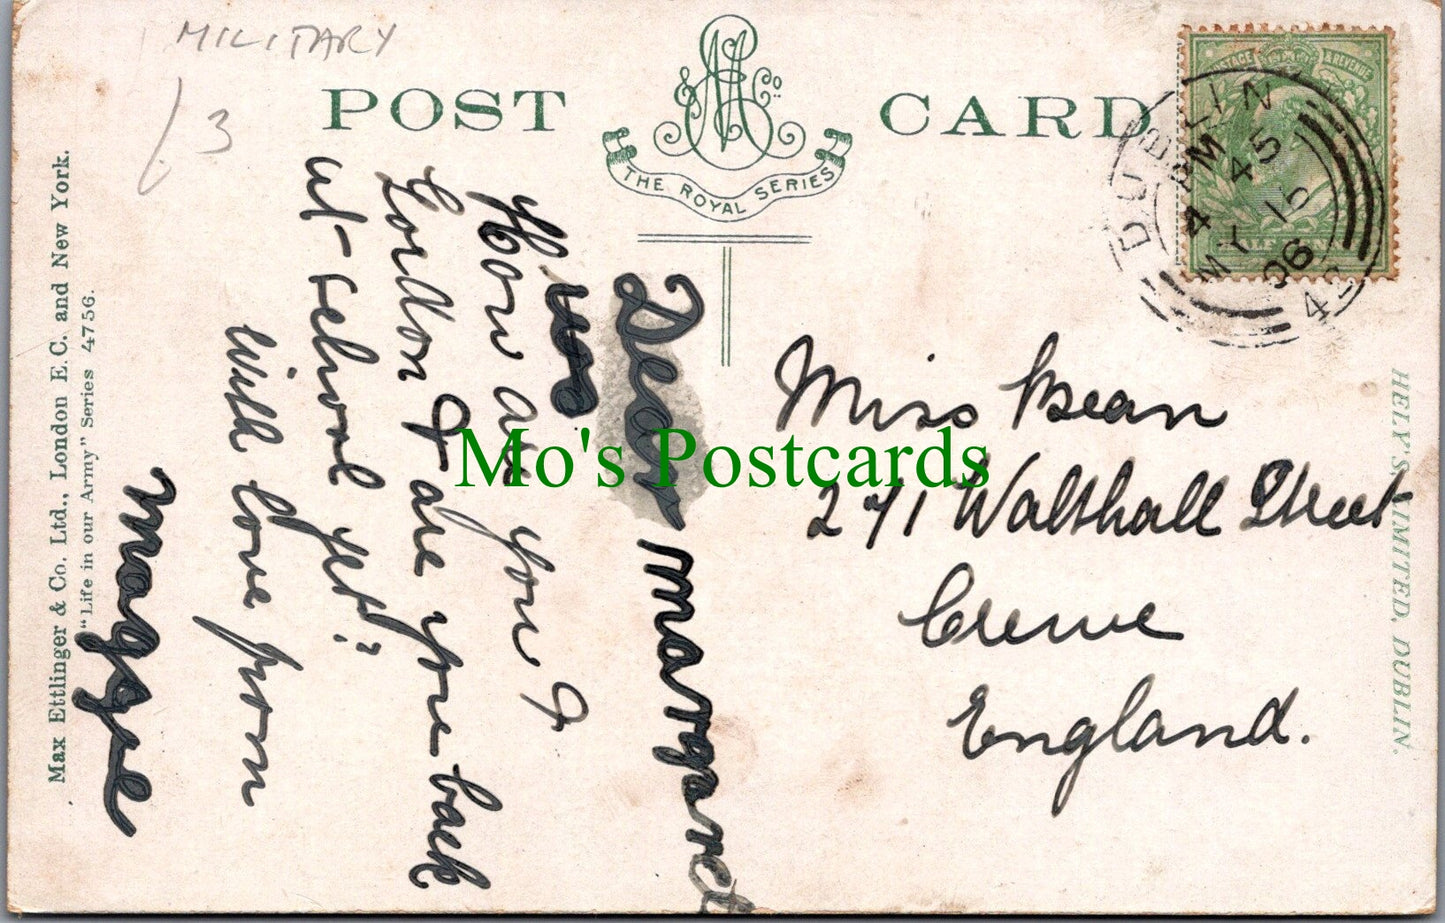 MILITARY
/3
POST CARD
& Co.
THE ROYAL SERIES
DUBLIN
4 45 PM
MY 15
06
43
POSTAGE & REVENUE
HALF PENNY
Max Ettlinger & Co. Ltd., London E.C. and New York.
"Life in our Army" Series 4756.
Dear Margaret
How are you &
Gordon & are you back
at school yet?
With love from
Maggie
Miss Bean
271 Walthall Street
Crewe
England.
HELY'S LIMITED, DUBLIN.
Mo's Postcards